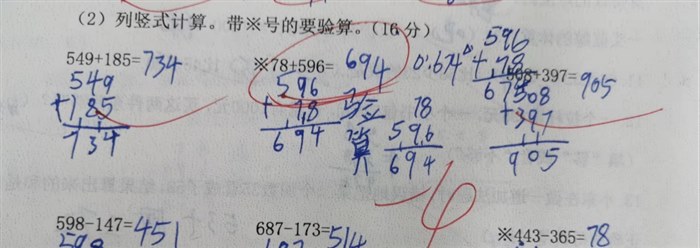 (2) 列竖式计算。带※号的要验算。(16分)
549+185=734 ※78+596=694 508+397=905
549
+185
734
596
+78
694
验算
78
596
694
596
+78
508
+397
905
-4
598-147=451 687-173=514 ※443-365=78